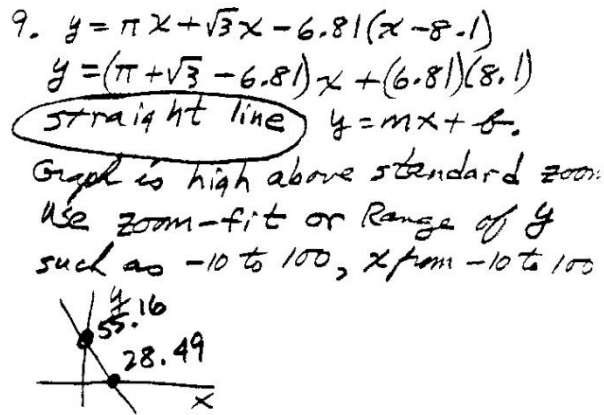 9. y = πx + √3x - 6.81(x - 8.1)
y = (π + √3 - 6.81)x + (6.81)(8.1)
straight line y = mx + b.
Graph is high above standard zoom.
Use zoom-fit or Range of y
such as -10 to 100, x from -10 to 100
y
55.16
28.49
x